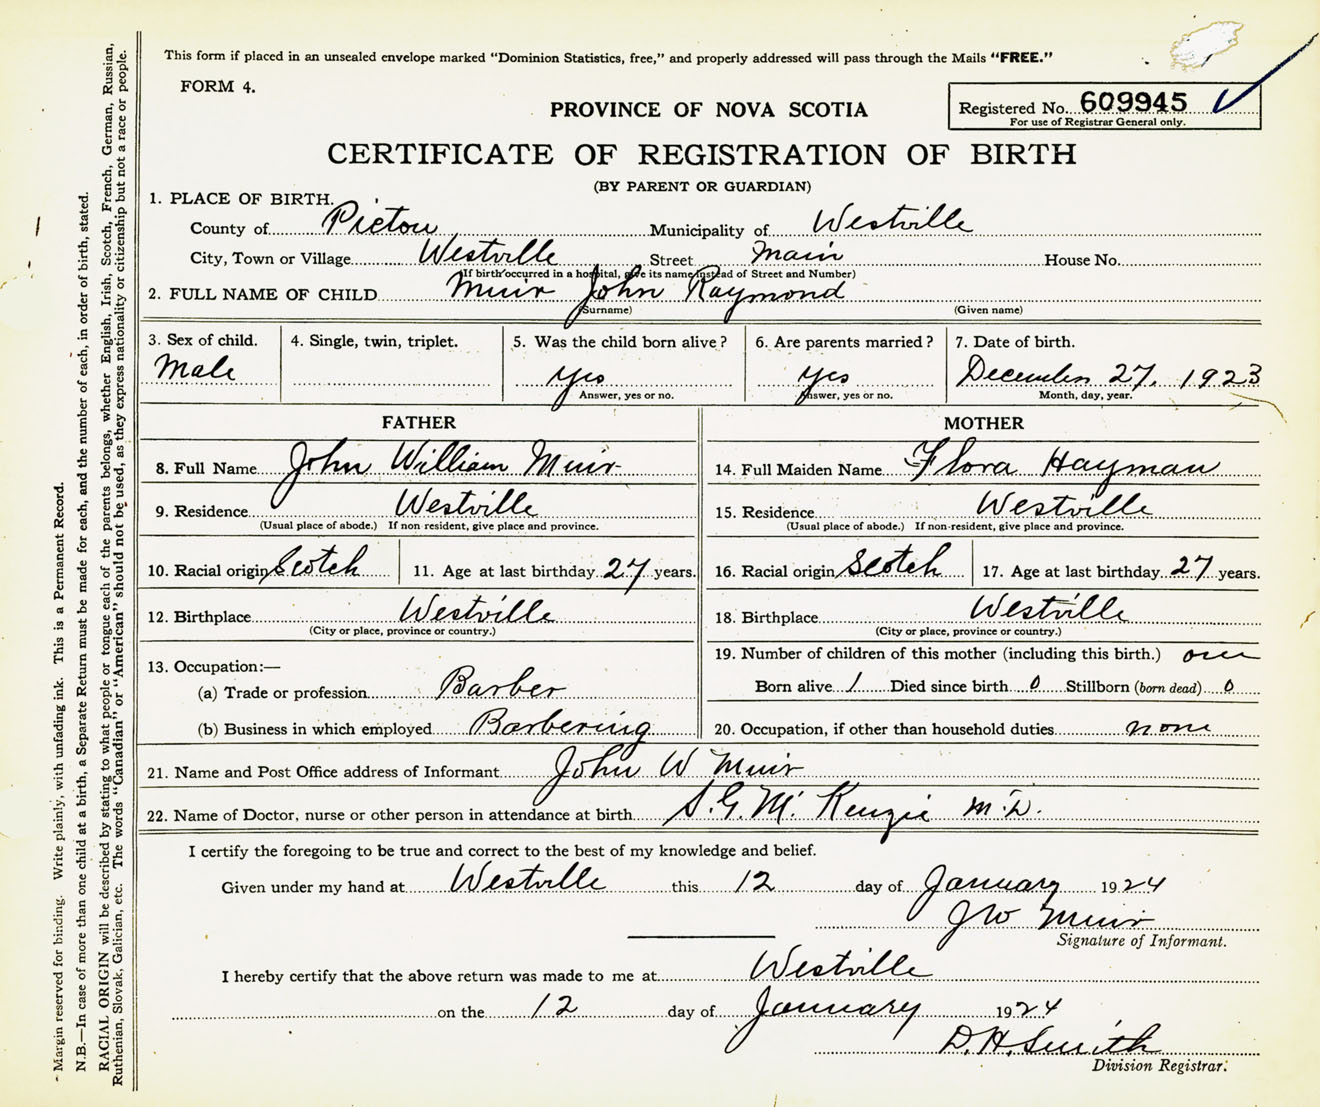 This form if placed in an unsealed envelope marked "Dominion Statistics, free," and properly addressed will pass through the Mails "FREE."
FORM 4.
Registered No. 609945
For use of Registrar General only.
PROVINCE OF NOVA SCOTIA
CERTIFICATE OF REGISTRATION OF BIRTH
(BY PARENT OR GUARDIAN)
1. PLACE OF BIRTH.
County of Pictou Municipality of Westville
City, Town or Village Westville Street Main House No.
(If birth occurred in a hospital, give its name instead of Street and Number)
2. FULL NAME OF CHILD Muir John Raymond
(Surname) (Given name)
3. Sex of child. 4. Single, twin, triplet. 5. Was the child born alive? 6. Are parents married? 7. Date of birth.
Male yes yes December 27, 1923
Answer, yes or no. Answer, yes or no. Month, day, year.
FATHER
8. Full Name John William Muir
9. Residence Westville
(Usual place of abode.) If non resident, give place and province.
10. Racial origin Scotch 11. Age at last birthday 27 years.
12. Birthplace Westville
(City or place, province or country.)
13. Occupation:—
(a) Trade or profession Barber
(b) Business in which employed Barbering
MOTHER
14. Full Maiden Name Flora Hayman
15. Residence Westville
(Usual place of abode.) If non-resident, give place and province.
16. Racial origin Scotch 17. Age at last birthday 27 years.
18. Birthplace Westville
(City or place, province or country.)
19. Number of children of this mother (including this birth.) one
Born alive 1 Died since birth 0 Stillborn (born dead) 0
20. Occupation, if other than household duties none
21. Name and Post Office address of Informant John W Muir
22. Name of Doctor, nurse or other person in attendance at birth S.G. Mc Kenzie M.D.
I certify the foregoing to be true and correct to the best of my knowledge and belief.
Given under my hand at Westville this 12 day of January 1924
J W Muir
Signature of Informant.
I hereby certify that the above return was made to me at Westville
on the 12 day of January 1924
D. H. Smith
Division Registrar.
Margin reserved for binding. Write plainly, with unfading ink. This is a Permanent Record.
N.B.—In case of more than one child at a birth, a Separate Return must be made for each, and the number of each, in order of birth, stated.
RACIAL ORIGIN will be described by stating to what people or tongue each of the parents belongs, whether English, Irish, Scotch, French, German, Russian,
Ruthenian, Slovak, Galician, etc. The words "Canadian" or "American" should not be used, as they express nationality or citizenship but not a race or people.